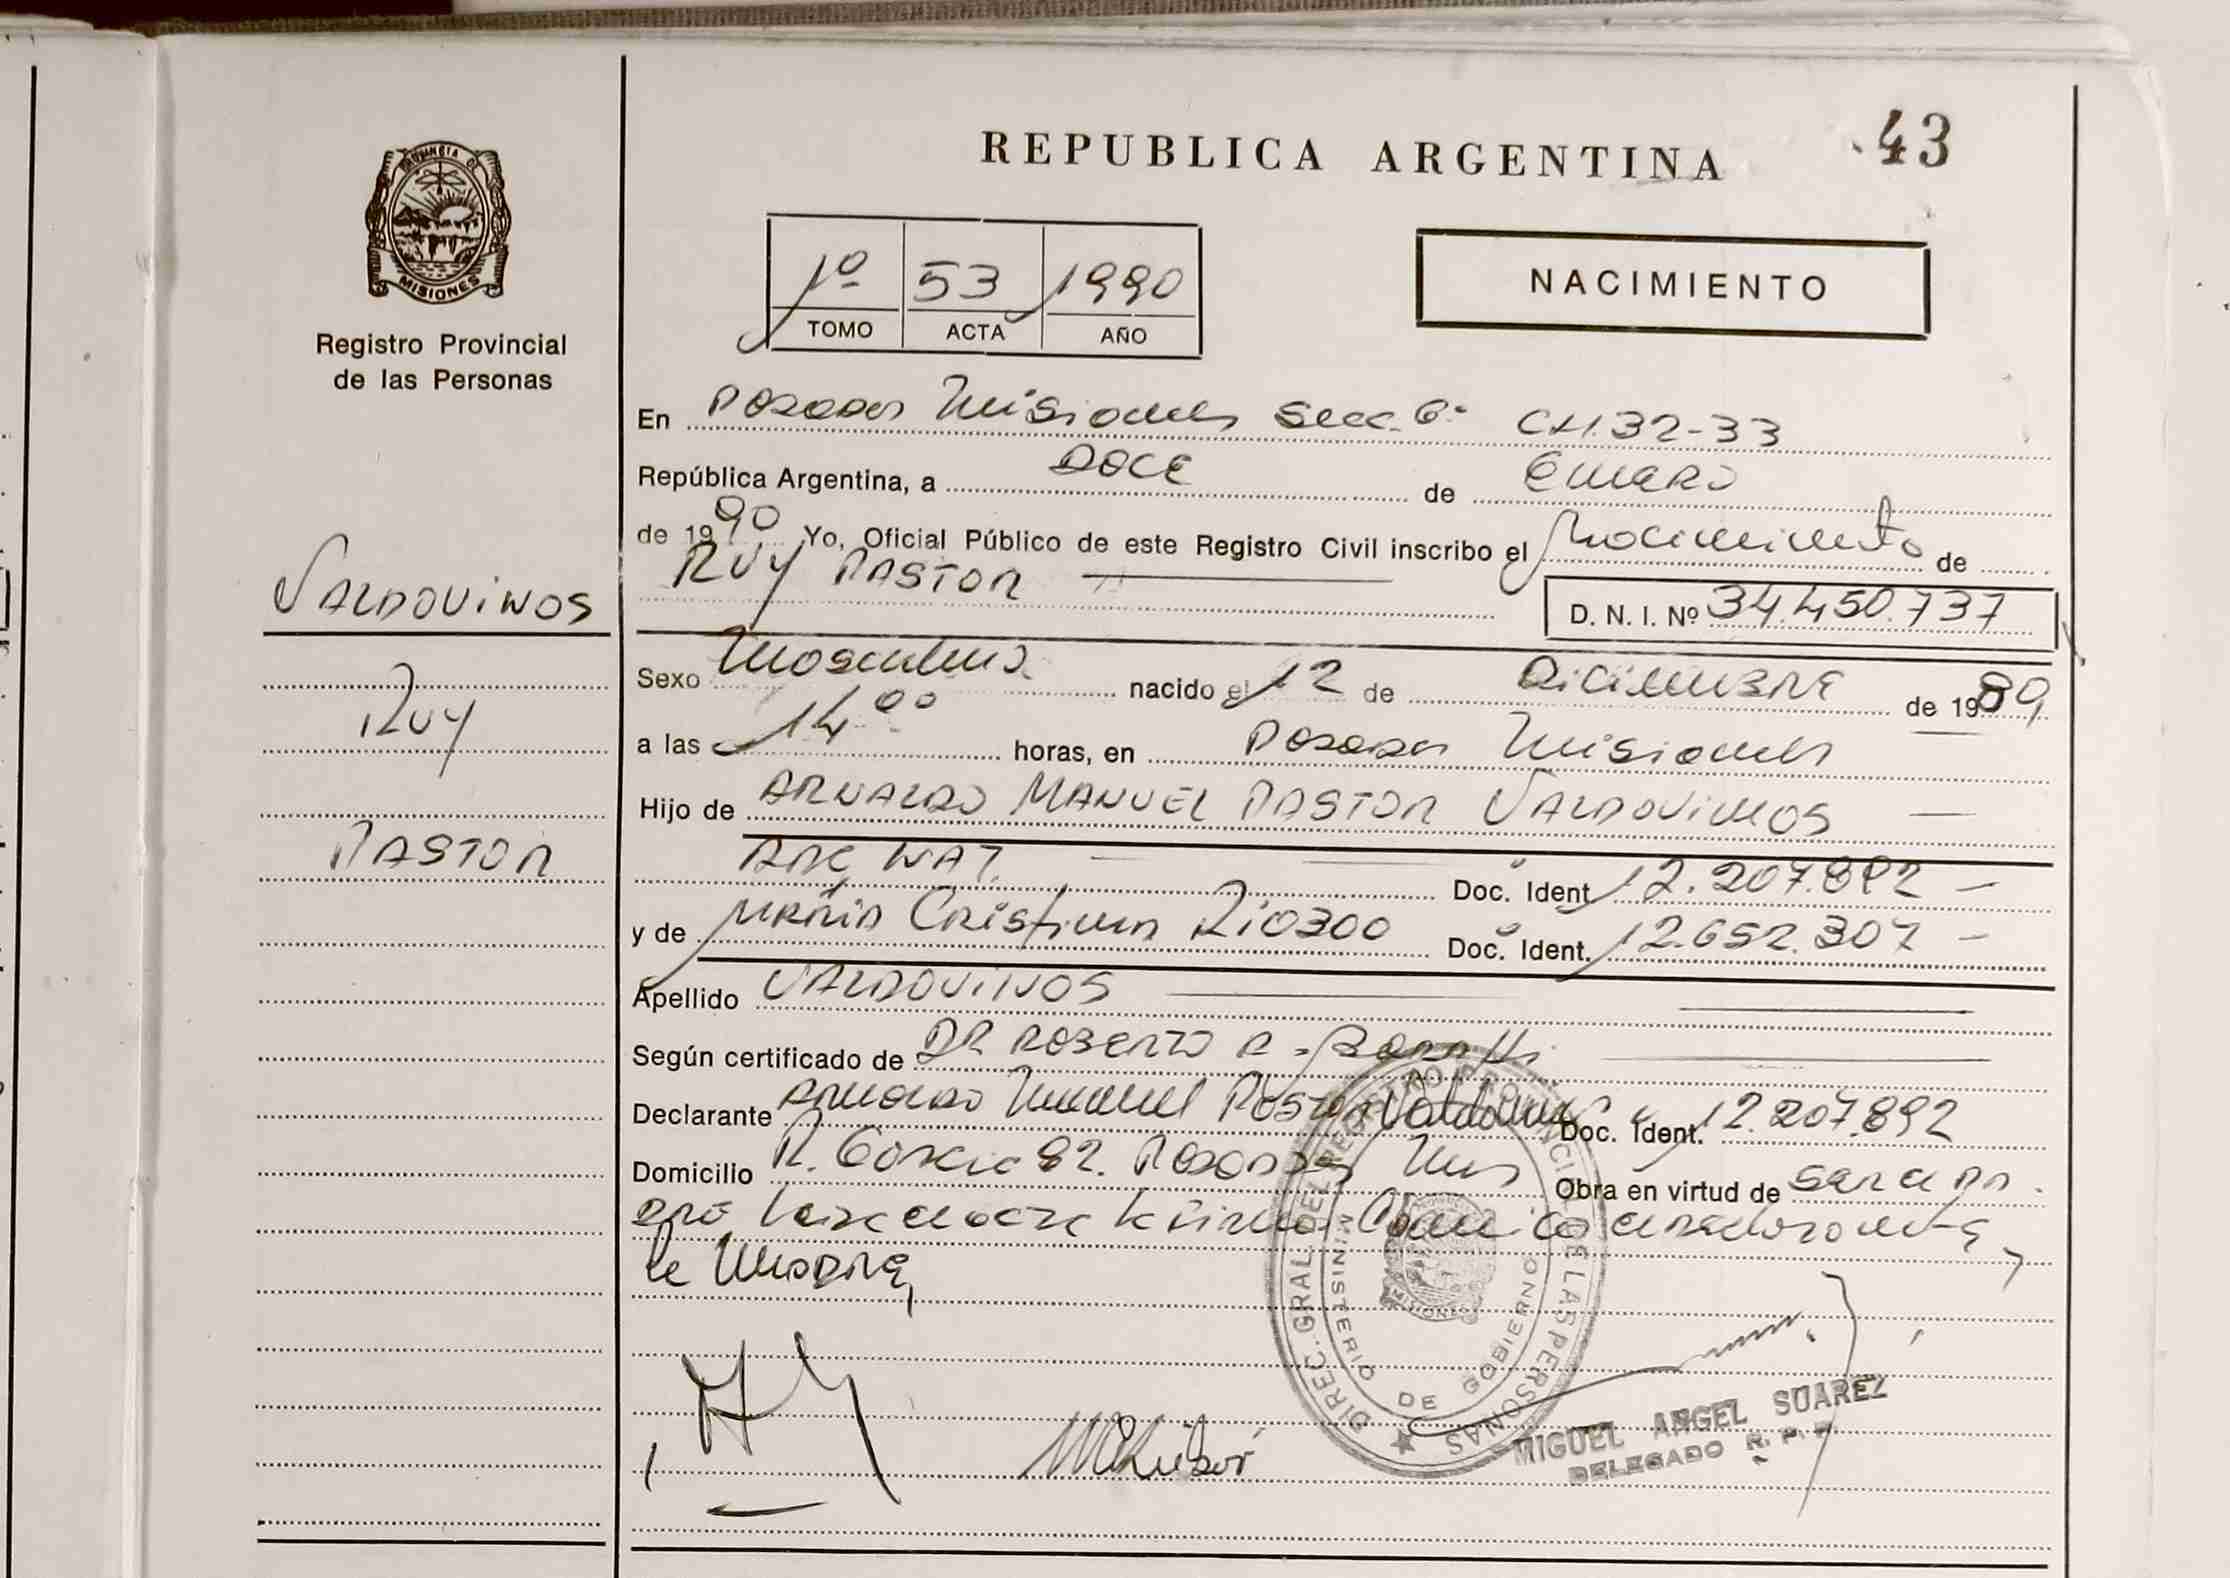 43
REPUBLICA ARGENTINA
PROVINCIA DE
MISIONES
Registro Provincial
de las Personas
1º 53 1990
TOMO ACTA AÑO
NACIMIENTO
En Posadas Misiones Secc. 6ª CH. 32-33
República Argentina, a DOCE de Enero
de 1990 Yo, Oficial Público de este Registro Civil inscribo el Nacimiento de
RUY PASTOR
D. N. I. Nº 34.450.737
VALDOVINOS
Ruy
PASTOR
Sexo Masculino nacido el 12 de Diciembre de 1989
a las 14 00 horas, en Posadas Misiones
Hijo de ARNALDO MANUEL PASTOR VALDOVINOS
ARG NAT. Doc. Ident 12.207.892
y de MARIA Cristina Doc. Ident. 12.652.307
Apellido VALDOVINOS
Según certificado de DR ROBERTO R.
Declarante Arnaldo Manuel Pastor Valdovinos Doc. Ident. 12.207.892
Domicilio R. García 82. Posadas Mns Obra en virtud de
la Madre
DIREC. GRAL DEL REGISTRO PROVINCIAL DE LAS PERSONAS
MINISTERIO DE GOBIERNO
MISIONES
MIGUEL ANGEL SUAREZ
DELEGADO R. P. P.